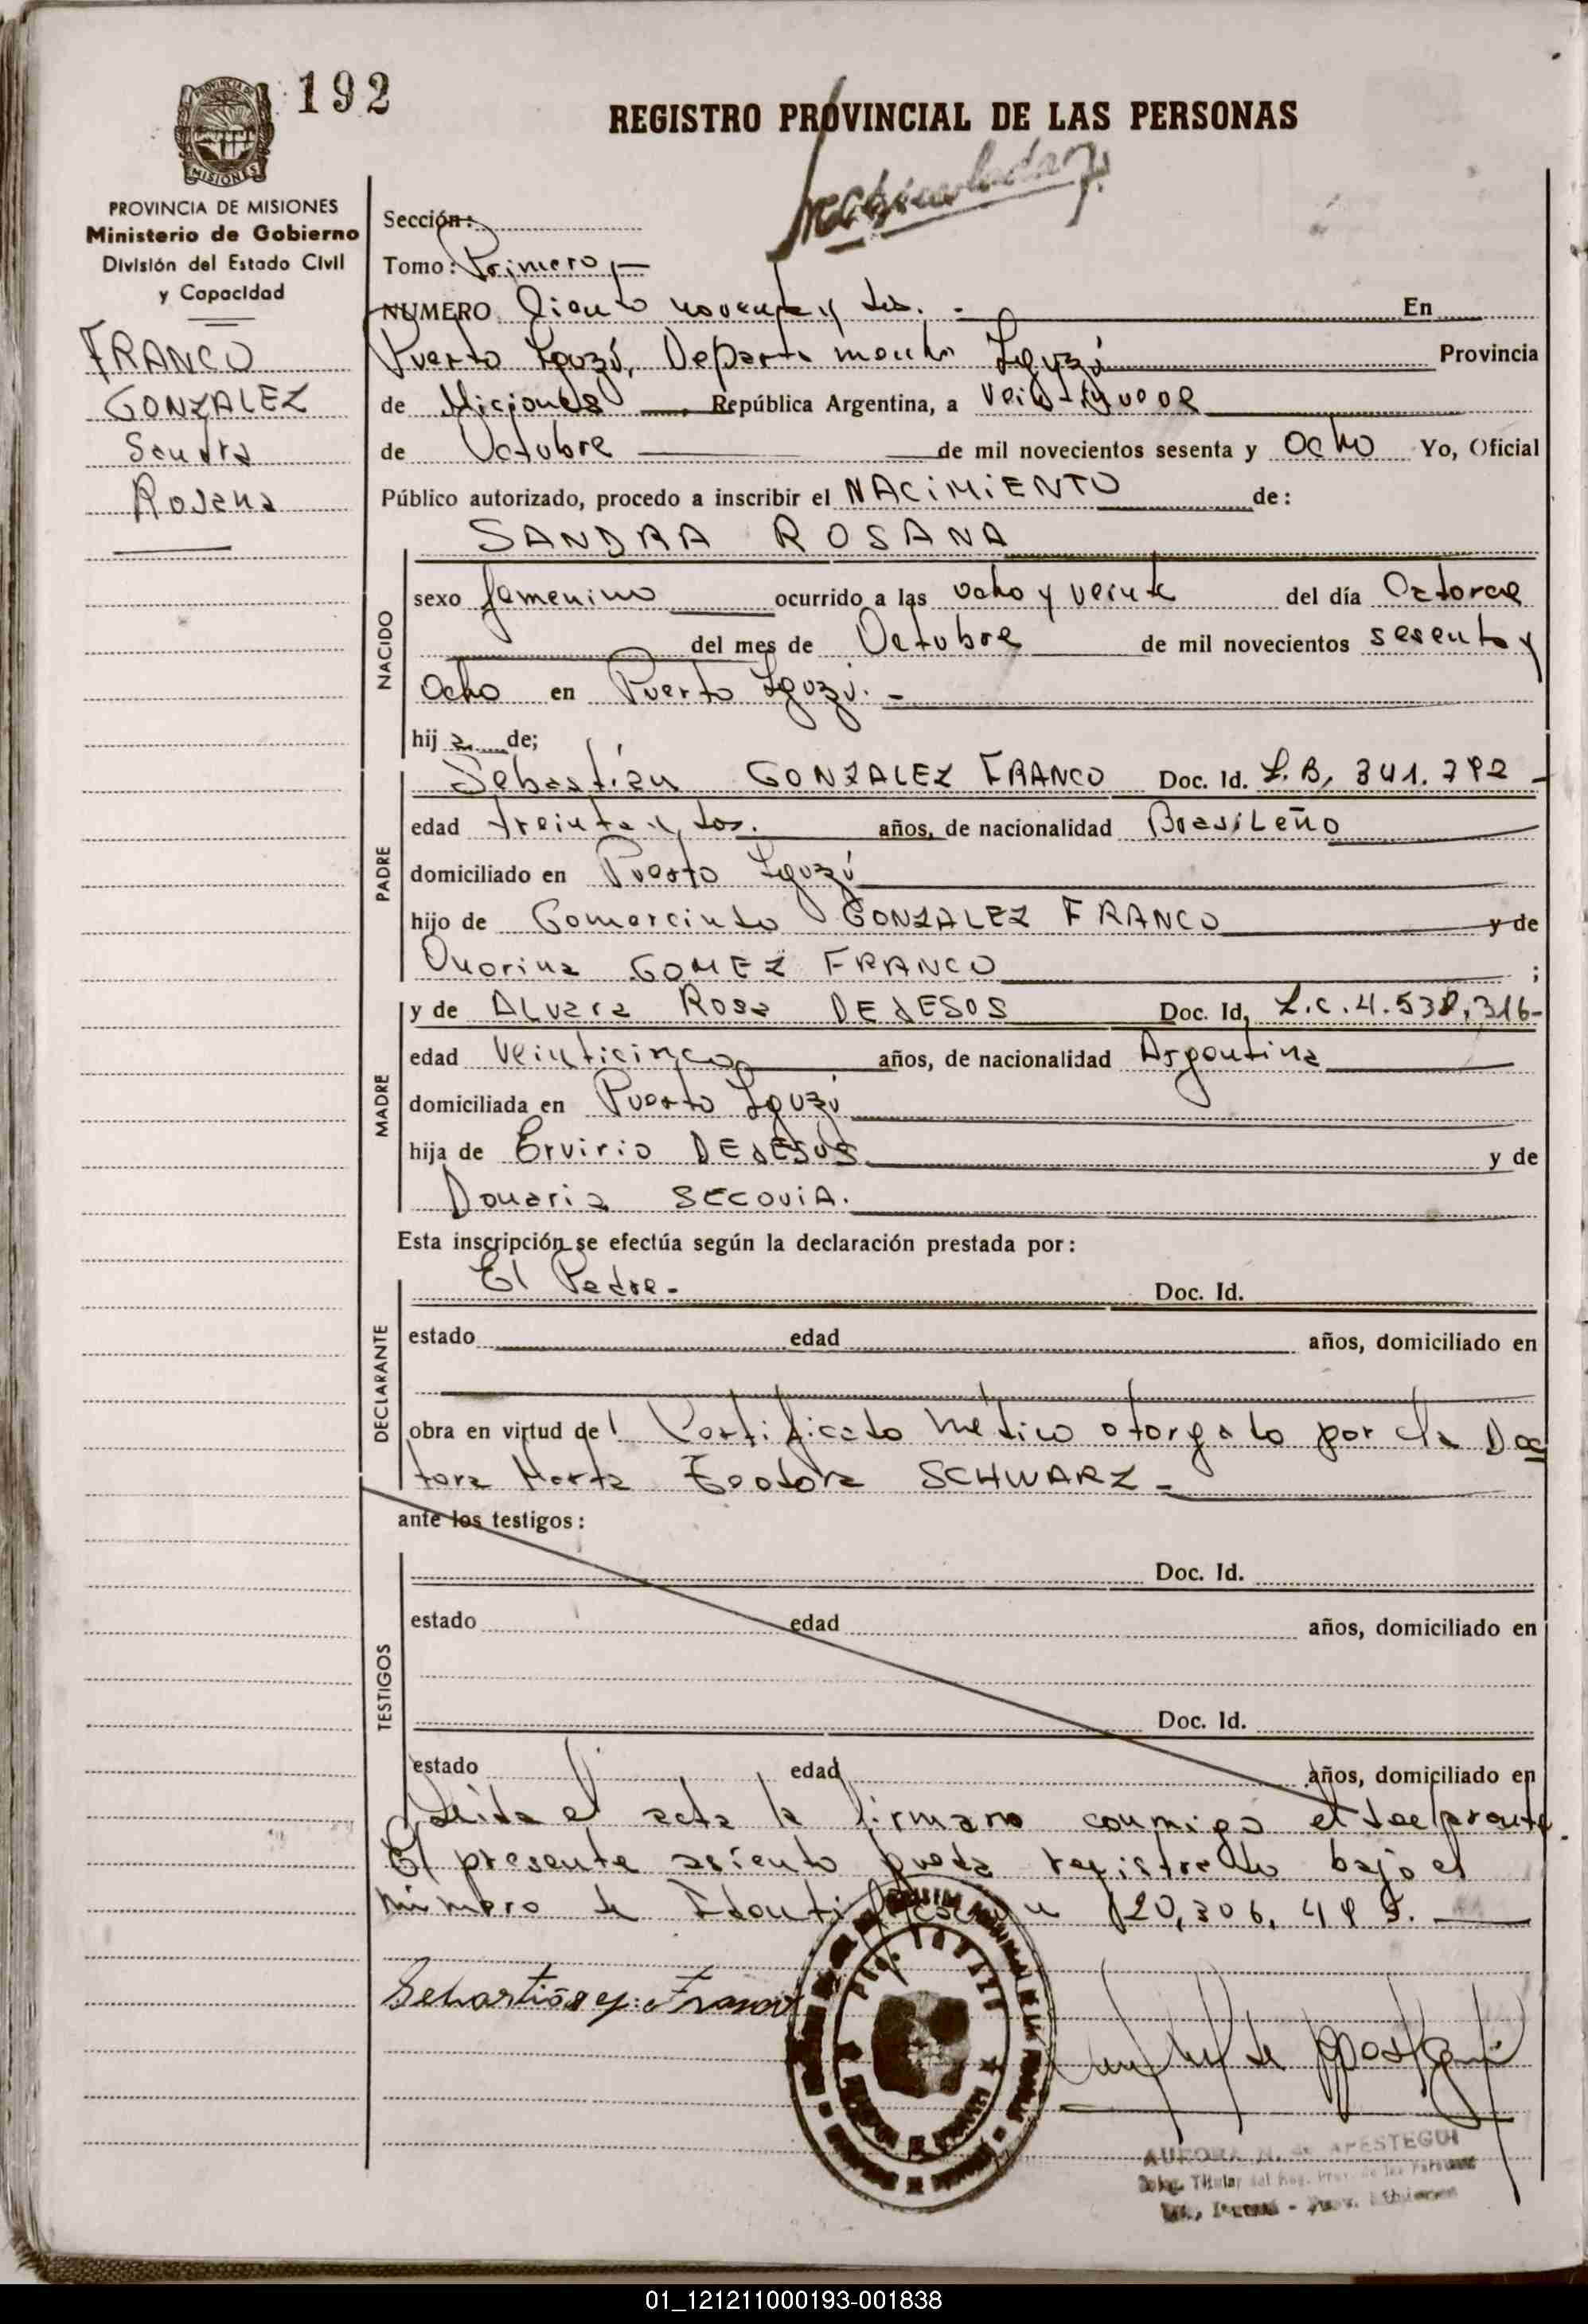 192
REGISTRO PROVINCIAL DE LAS PERSONAS
PROVINCIA DE MISIONES
Ministerio de Gobierno
División del Estado Civil
y Capacidad
FRANCO
GONZALEZ
Sandra
Rosana
Sección:
Tomo: Primero
NUMERO Ciento noventa y dos. - En
Puerto Iguazú, Departamento Iguazú Provincia
de Misiones República Argentina, a Veintinueve
de Octubre de mil novecientos sesenta y Ocho Yo, Oficial
Público autorizado, procedo a inscribir el NACIMIENTO de:
SANDRA ROSANA
NACIDO
sexo femenino ocurrido a las ocho y veinte del día Catorce
del mes de Octubre de mil novecientos sesenta y
Ocho en Puerto Iguazú. -
hija de;
PADRE
Sebastián GONZALEZ FRANCO Doc. Id. L.B. 341.792 -
edad treinta y dos. años, de nacionalidad Brasileño
domiciliado en Puerto Iguazú
hijo de Gomercindo GONZALEZ FRANCO y de
Onorina GOMEZ FRANCO ;
MADRE
y de Alvara Rosa DEJESUS Doc. Id. L.C. 4.538.316-
edad Veinticinco años, de nacionalidad Argentina
domiciliada en Puerto Iguazú
hija de Ervirio DEJESUS y de
Donaria SEGOVIA.
Esta inscripción se efectúa según la declaración prestada por:
DECLARANTE
El Padre. - Doc. Id.
estado edad años, domiciliado en
obra en virtud del Certificado Médico otorgado por la Doc
tora Marta Teodora SCHWARZ -
ante los testigos:
TESTIGOS
Doc. Id.
estado edad años, domiciliado en
Doc. Id.
estado edad años, domiciliado en
Leída el acta la firman conmigo el declarante.
El presente asiento queda registrado bajo el
número de Identificación 20,306,495.
Sebastián G. Franco
AURORA N. de APESTEGUI
01_121211000193-001838